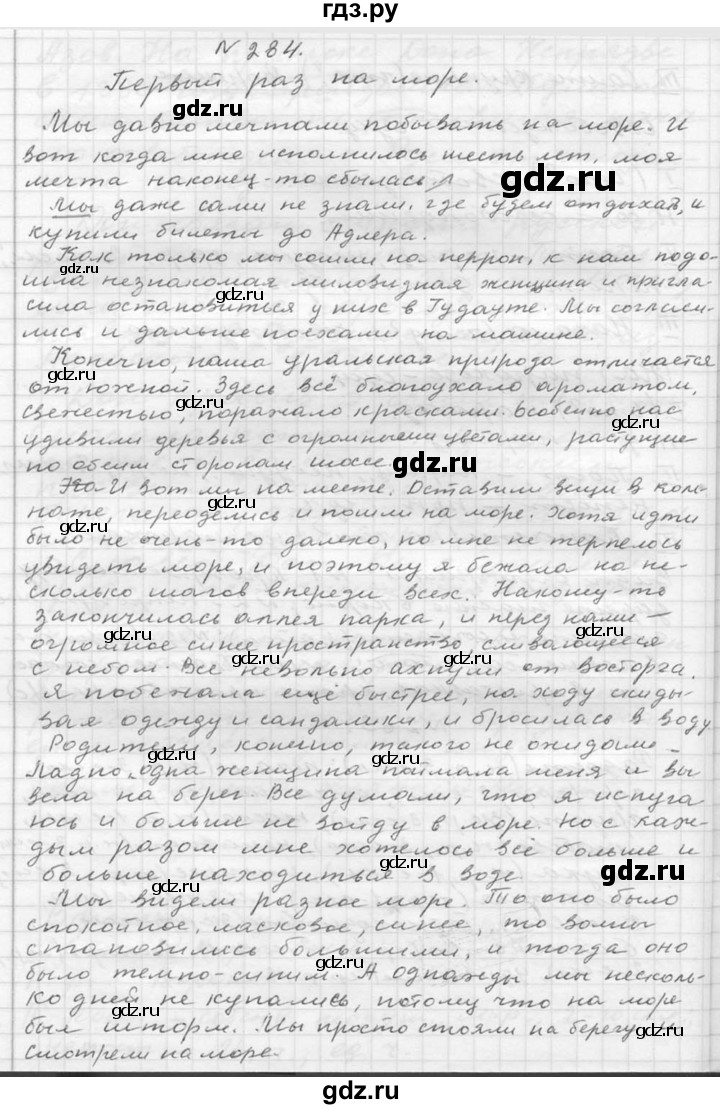 гдз.ру
№ 284.
Первый раз на море.
Мы давно мечтали побывать на море. И
вот когда мне исполнилось шесть лет, моя
мечта наконец-то сбылась.
Мы даже сами не знали, где будем отдыхать, и
купили билеты до Адлера.
Как только мы сошли на перрон, к нам подо-
шла незнакомая миловидная женщина и пригла
сила остановиться у них в Гудауте. Мы согласи-
лись и дальше поехали на машине.
Конечно, наша уральская природа отличается
от южной. Здесь всё благоухало ароматом,
свежестью, поражало красками. Особенно нас
удивили деревья с огромными цветами, растущие
по обеим сторонам шоссе.
И вот мы на месте. Оставили вещи в ком-
нате, переоделись и пошли на море. Хотя идти
было не очень-то далеко, но мне не терпелось
увидеть море, и поэтому я бежала на не-
сколько шагов впереди всех. Наконец-то
закончилась аллея парка, и перед нами —
огромное синее пространство, сливающееся
с небом. Все невольно ахнули от восторга.
Я побежала ещё быстрее, на ходу скиды-
вая одежду и сандалики, и бросилась в воду.
Родители, конечно, такого не ожидали.
Ладно, одна женщина поймала меня и вы
вела на берег. Все думали, что я испуга
юсь и больше не войду в море. Но с каж-
дым разом мне хотелось всё больше и
больше находиться в воде.
Мы видели разное море. То оно было
спокойное, ласковое, синее, то волны
становились большими, и тогда оно
было темно-синим. А однажды мы несколь-
ко дней не купались, потому что на море
был шторм. Мы просто стояли на берегу и
смотрели на море.
gdz.ru